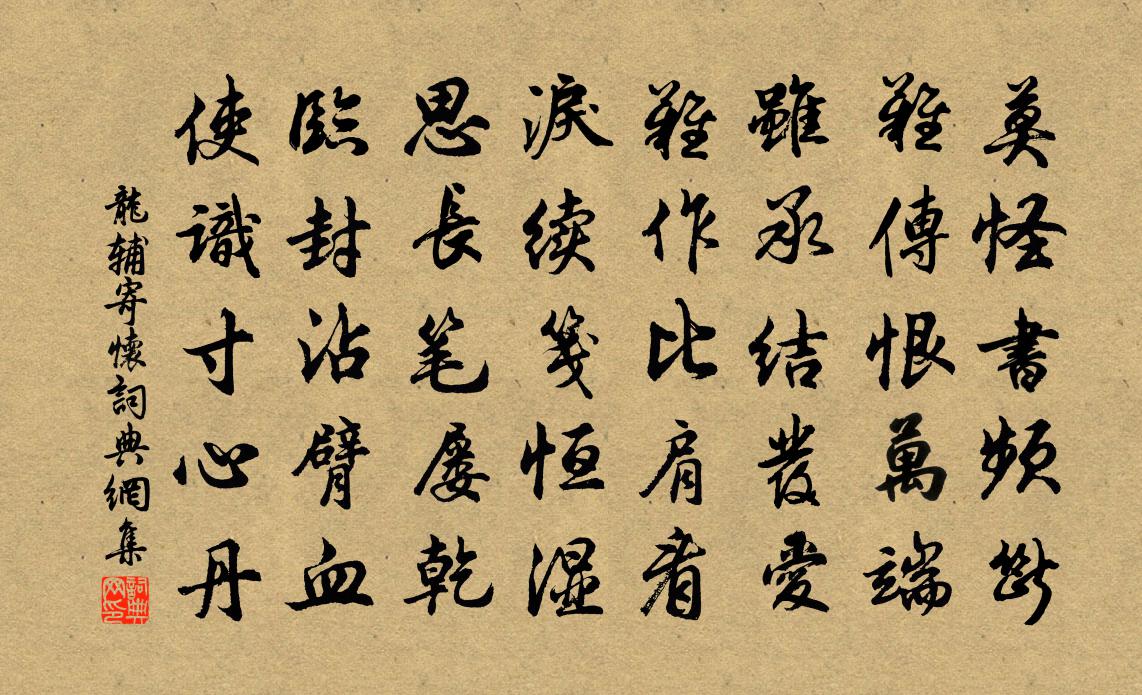 莫怪書頻斷
難傳恨萬端
雖承結髮愛
難作比肩看
淚续箋恒濕
思長笔屡乾
臨封沾臂血
使識寸心丹
龍辅寄懷詞典網集
詞典网印